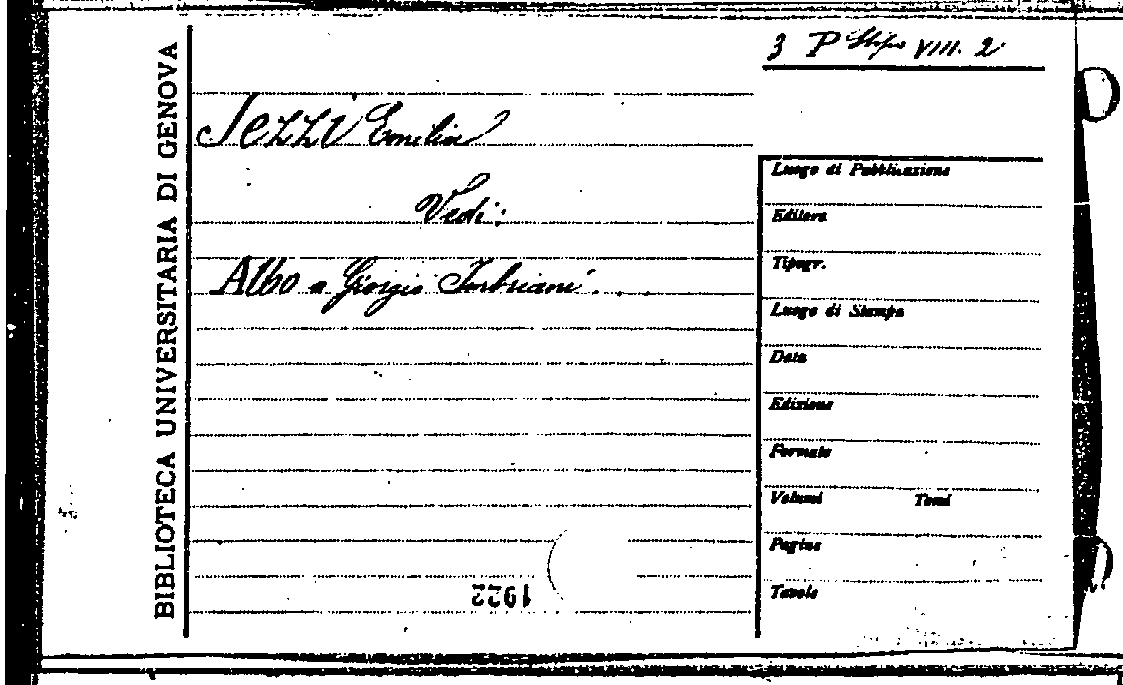 BIBLIOTECA UNIVERSITARIA DI GENOVA
3 P Stipo VIII. 2
Jezzi Emilia
Vedi:
Albo a Giorgio Imbriani . . .
Luogo di Pubblicazione
Editore
Tipogr.
Luogo di Stampa
Data
Edizione
Formato
Volumi Tomi
Pagine
Tavole
1922